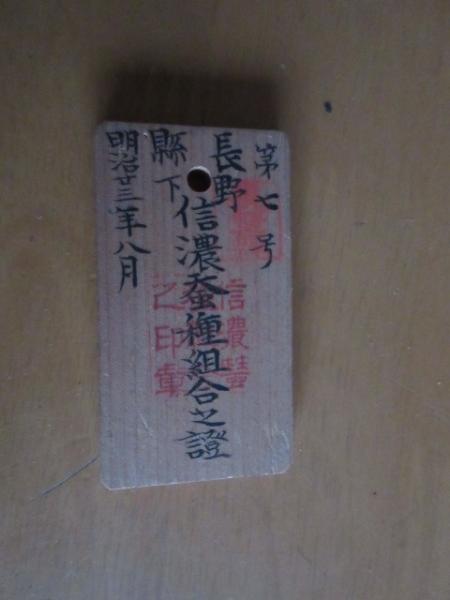 第七号
長野
縣下
信濃蚕種組合之證
明治廿三年八月
信濃
之印